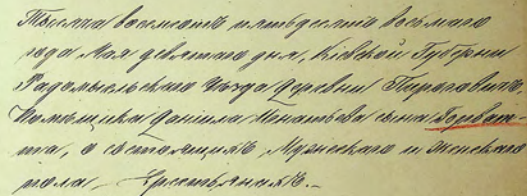 Тысяча восемсотъ пятьдесятъ восьмаго
года Мая девятаго дня, Кіевской Губерніи
Радомысльскаго Уѣзда Деревни Пиріговичъ,
Помѣщика Даніила Игнатьева сына Горват-
та, о состоящихъ Мужескаго и женскаго
пола крестьянахъ.